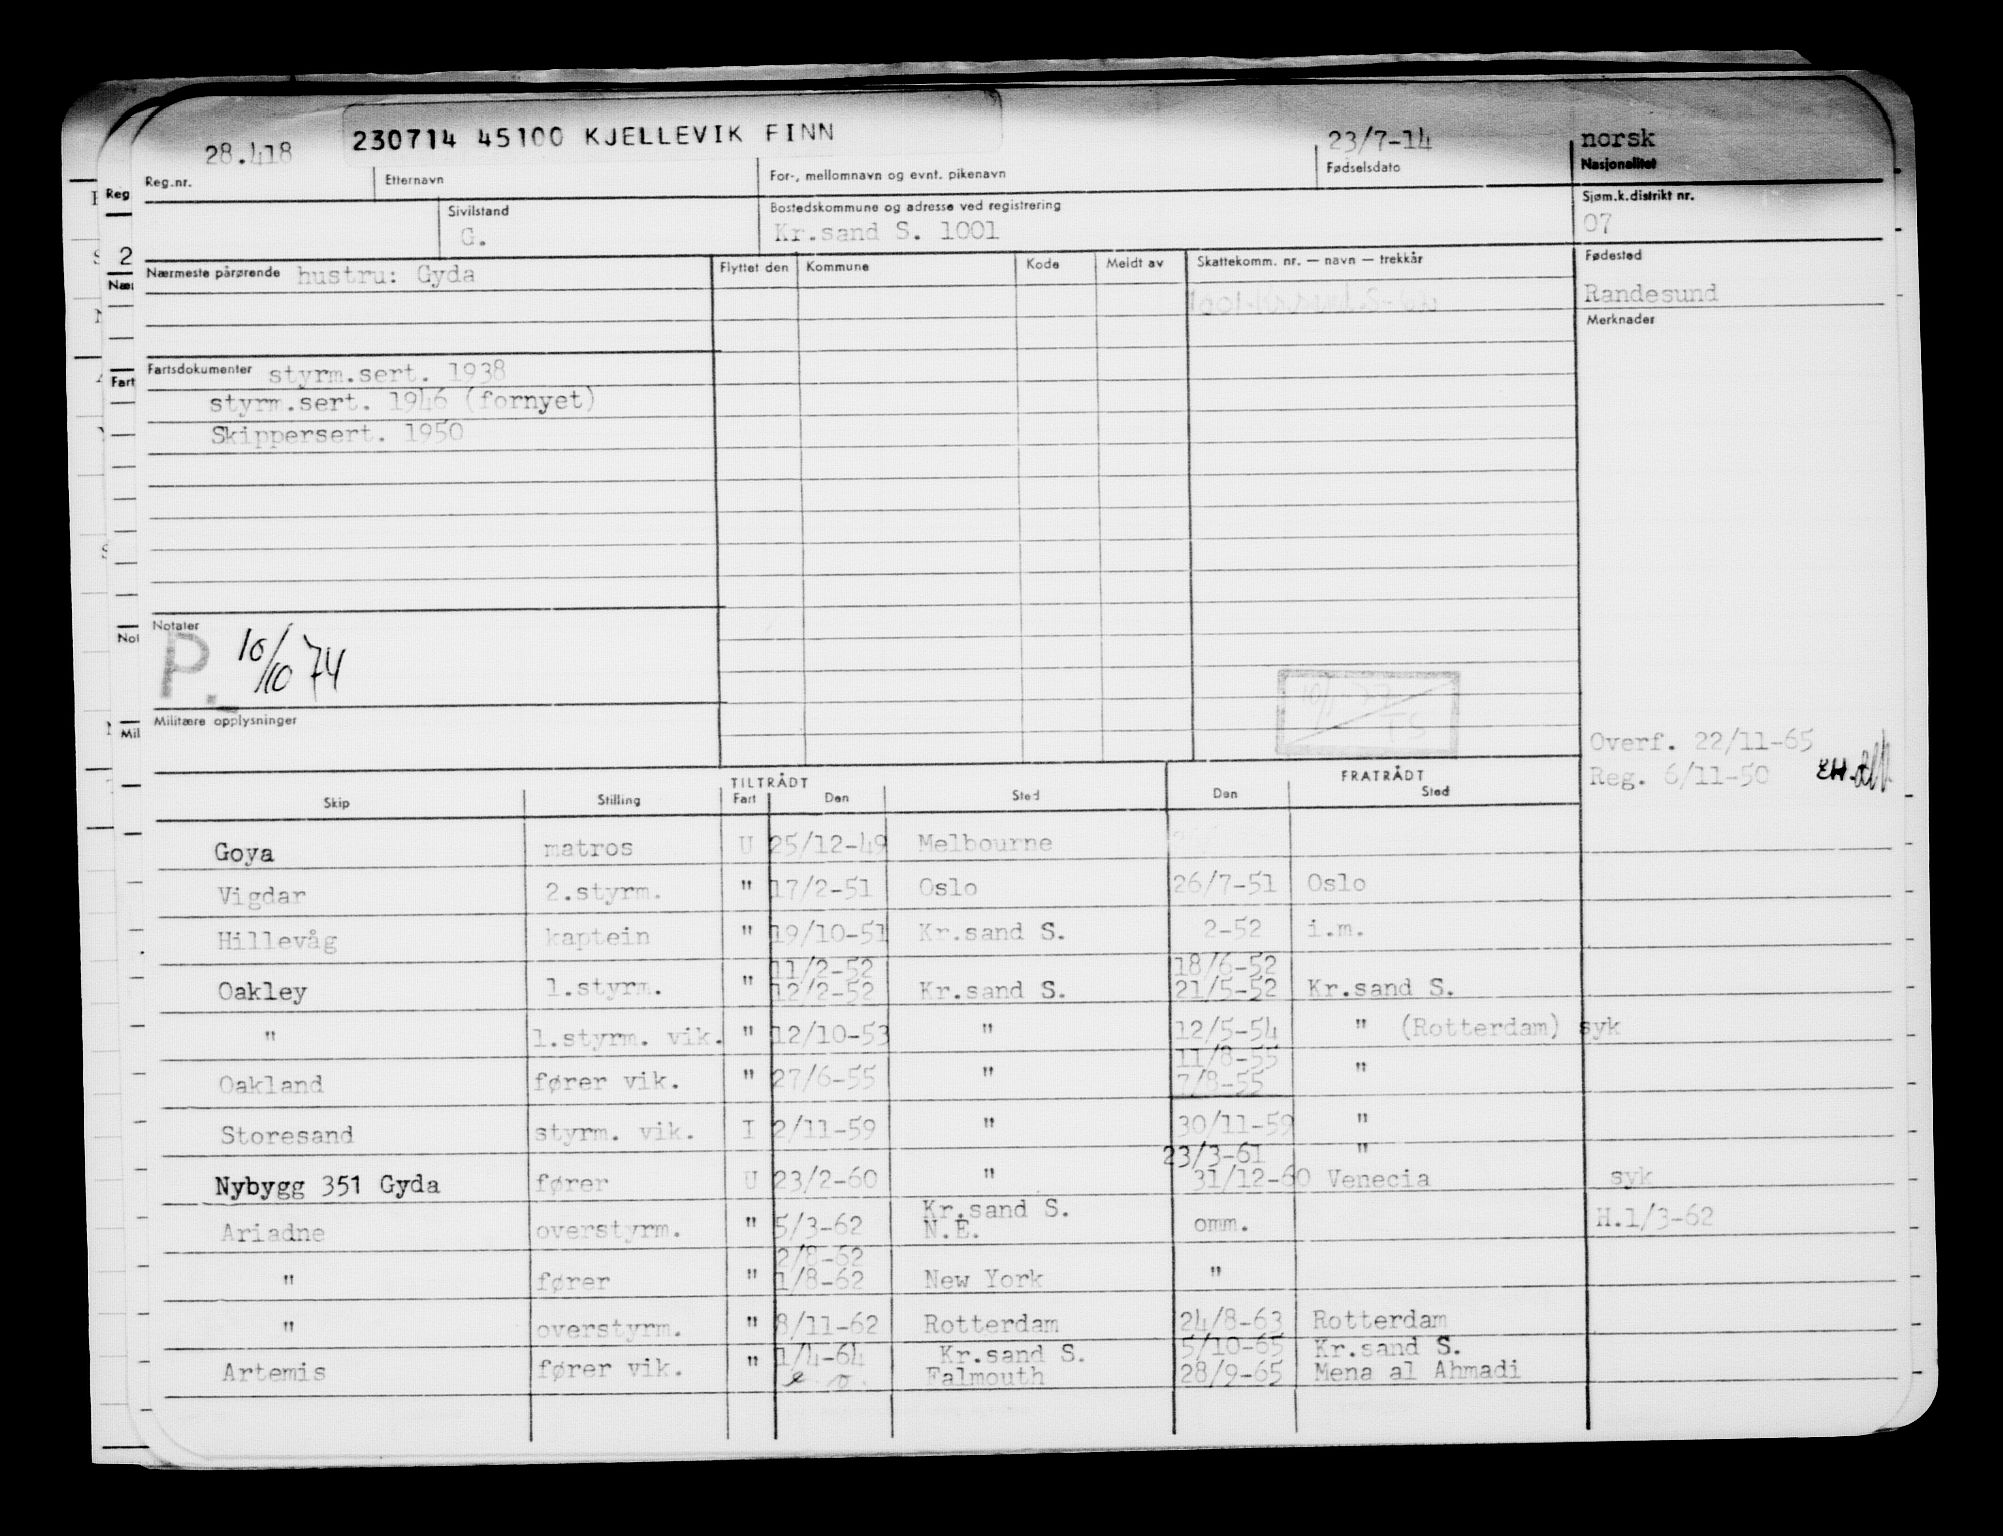 28.418 230714 45100 KJELLEVIK FINN 23/7-14 norsk
Reg.nr. Etternavn For-, mellomnavn og evnt. pikenavn Fødselsdato Nasjonalitet
Sivilstand Bostedskommune og adresse ved registrering Sjøm.k.distrikt nr.
G. Kr.sand S. 1001 07
Nærmeste pårørende hustru: Gyda Flyttet den Kommune Kode Meldt av Skattekomm. nr. — navn — trekkår Fødested
Randesund
Merknader
Fartsdokumenter styrm.sert. 1938
styrm.sert. 1946 (fornyet)
Skippersert. 1950
Notater
P. 10/10 74
Militære opplysninger
Overf. 22/11-65
Reg. 6/11-50 EH.
TILTRÅDT FRATRÅDT
Skip Stilling Fart Den Sted Den Sted
Goya matros U 25/12-49 Melbourne
Vigdar 2.styrm. " 17/2-51 Oslo 26/7-51 Oslo
Hillevåg kaptein " 19/10-51 Kr.sand S. 2-52 i.m.
11/2-52 18/6-52
Oakley 1.styrm. " 12/2-52 Kr.sand S. 21/5-52 Kr.sand S.
" 1.styrm. vik. " 12/10-53 " 12/5-54 " (Rotterdam) syk
11/8-55
Oakland fører vik. " 27/6-55 " 7/8-55 "
Storesand styrm. vik. I 2/11-59 " 30/11-59 "
23/3-61 "
Nybygg 351 Gyda fører U 23/2-60 " 31/12-60 Venecia syk
Kr.sand S.
Ariadne overstyrm. " 5/3-62 N.E. omm. H.1/3-62
2/8-62
" fører " 1/8-62 New York "
" overstyrm. " 8/11-62 Rotterdam 24/8-63 Rotterdam
1/4-64 Kr.sand S. 5/10-65 Kr.sand S.
Artemis fører vik. " Falmouth 28/9-65 Mena al Ahmadi